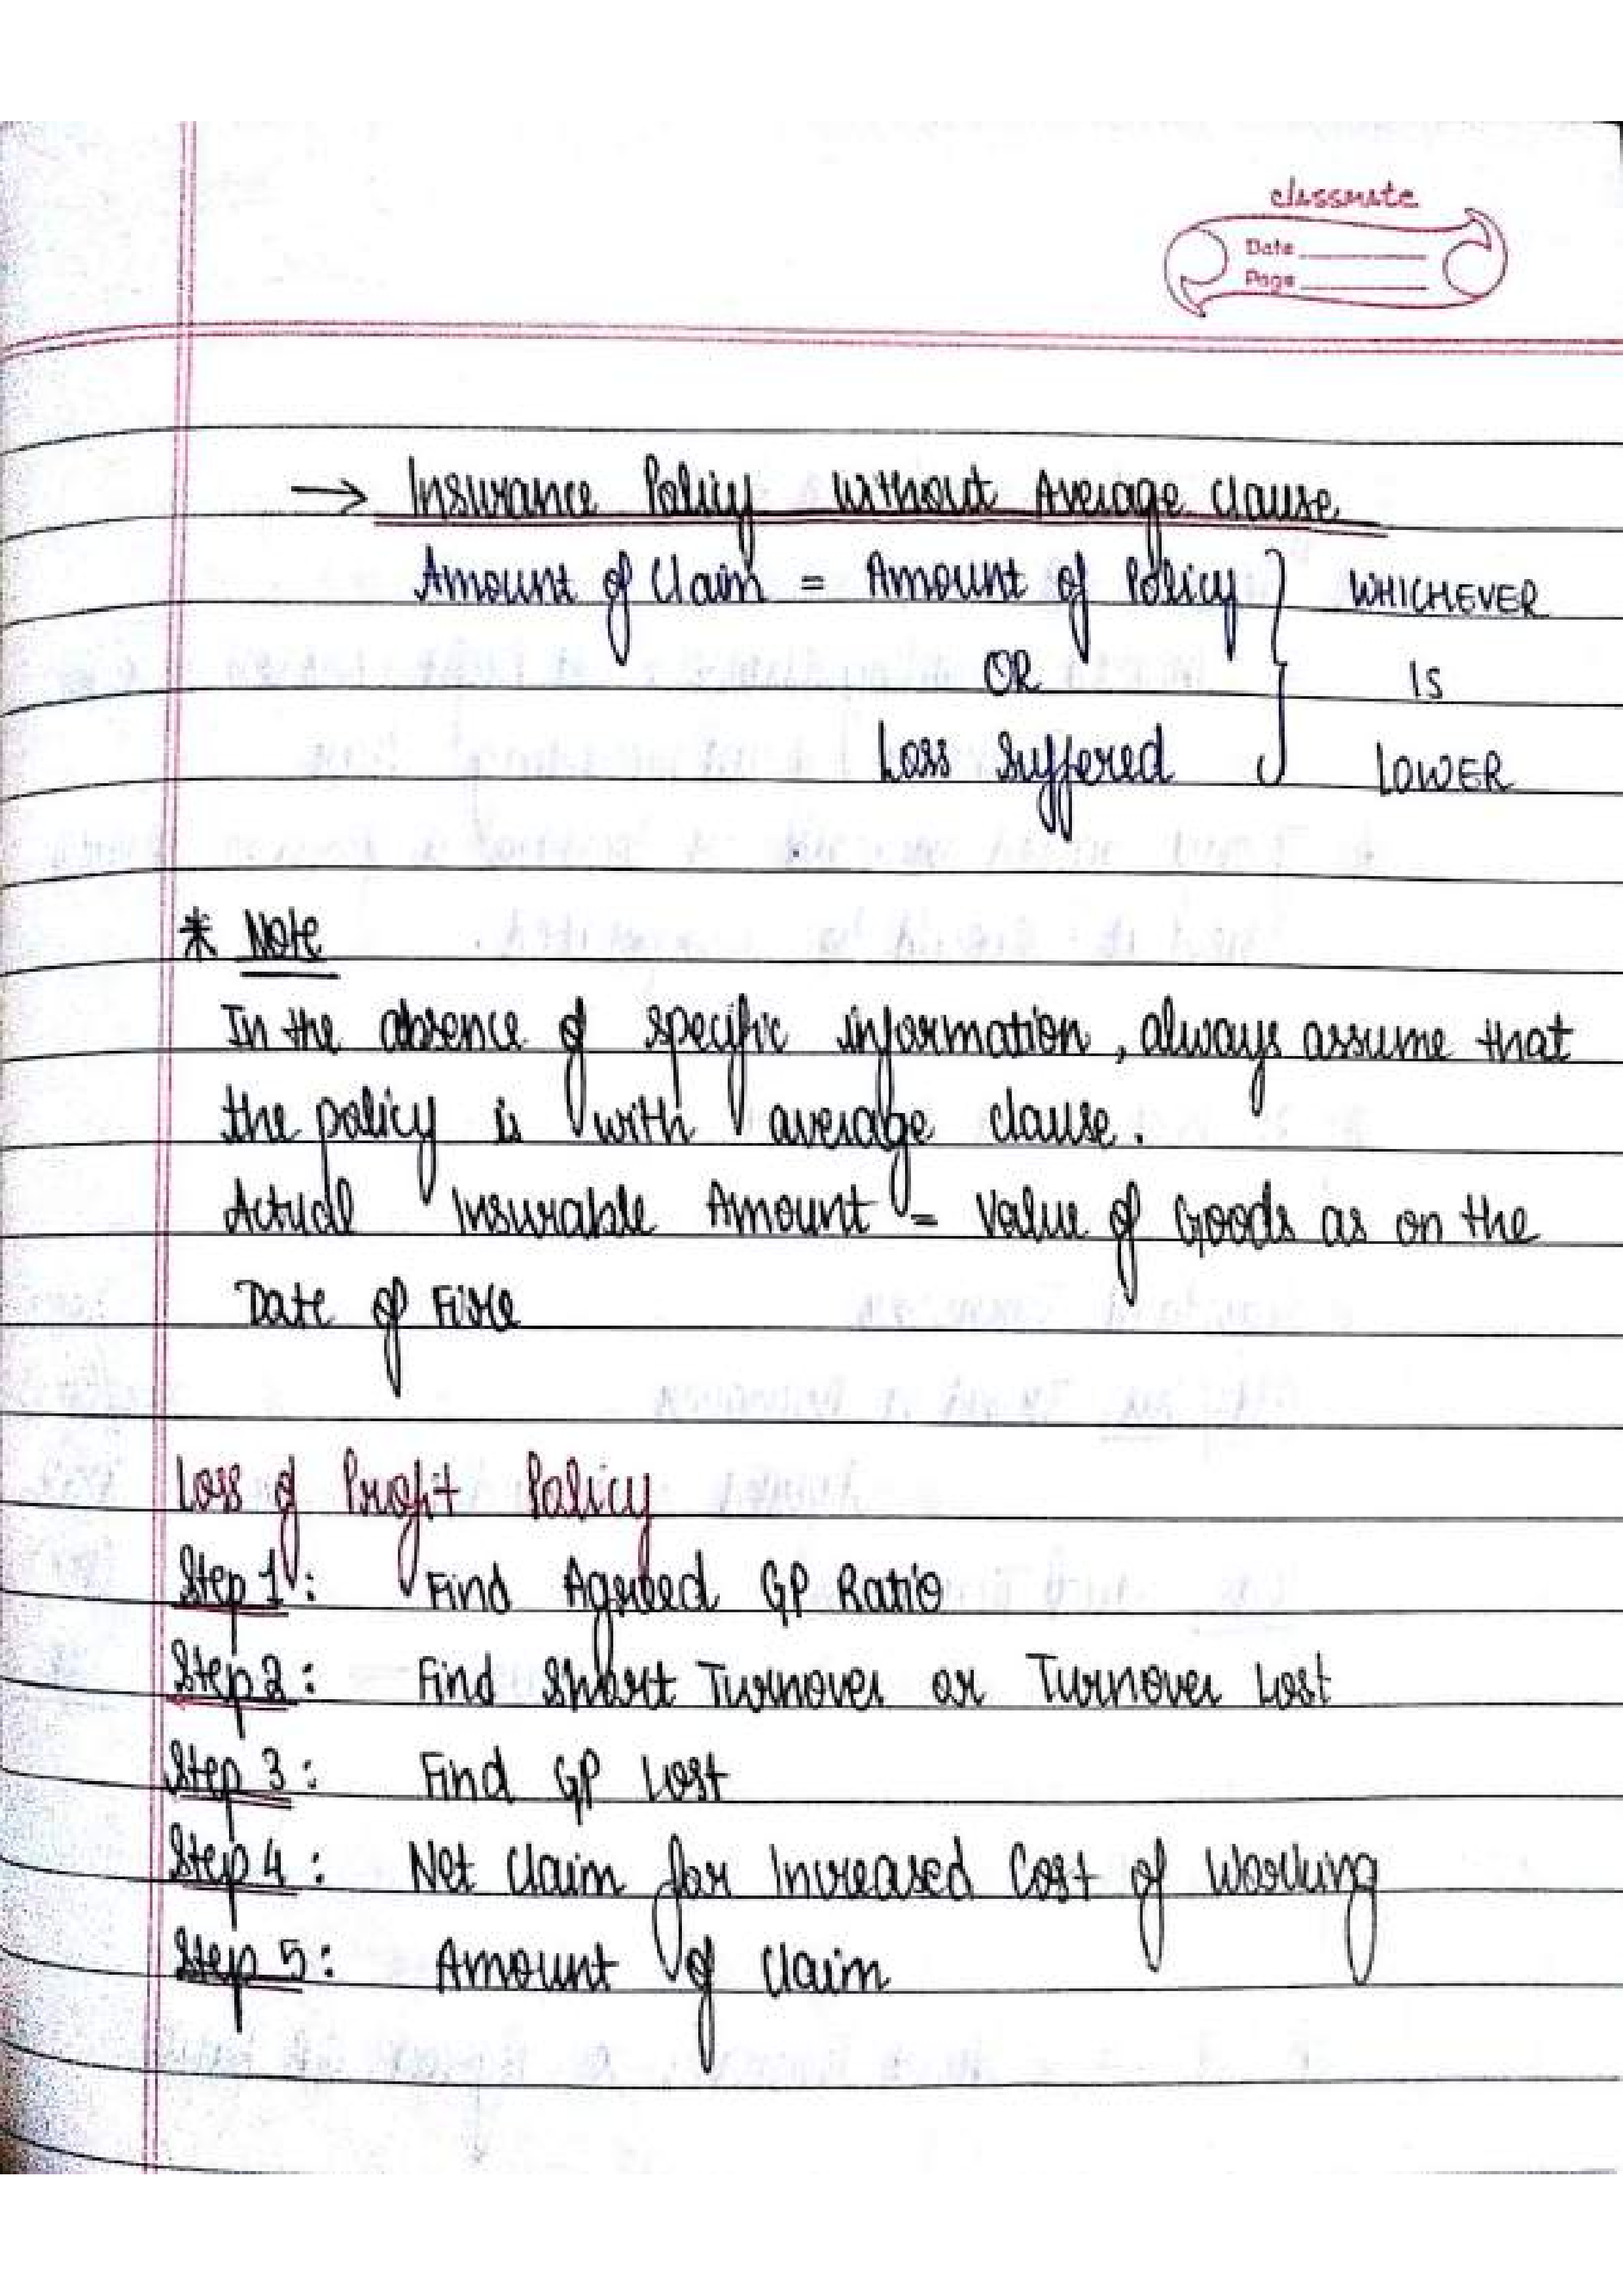 classmate
Date
Page
→ Insurance Policy Without Average Clause
Amount of Claim = Amount of Policy } WHICHEVER
OR IS
Loss Suffered LOWER
* Note
In the absence of specific information, always assume that
the policy is with average clause.
Actual Insurable Amount = Value of Goods as on the
Date of Fire
Loss of Profit Policy
Step 1: Find Agreed GP Ratio
Step 2: Find Short Turnover or Turnover Lost
Step 3: Find GP Lost
Step 4: Net Claim for Increased Cost of Working
Step 5: Amount of Claim